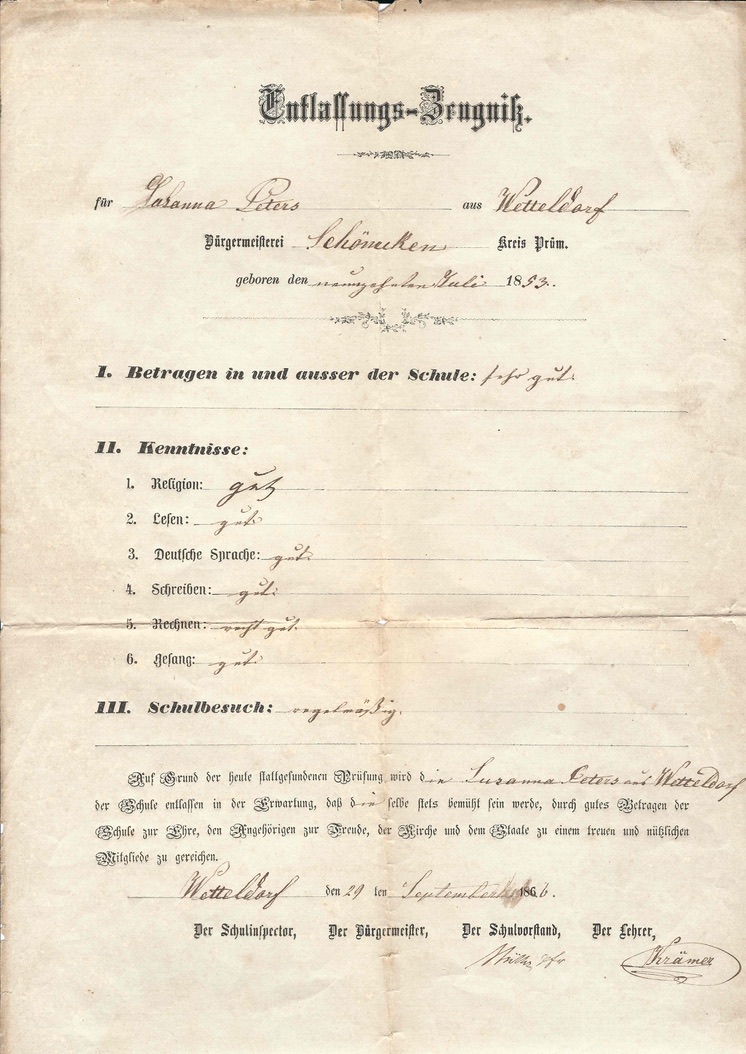 Entlassungs-Zeugniß.
für Susanna Peters aus Wetteldorf
Bürgermeisterei Schönecken Kreis Prüm.
geboren den neunzehnten Juli 1853.
I. Betragen in und ausser der Schule: sehr gut.
II. Kenntnisse:
1. Religion: gut
2. Lesen: gut
3. Deutsche Sprache: gut.
4. Schreiben: gut.
5. Rechnen: recht gut.
6. Gesang: gut.
III. Schulbesuch: regelmäßig.
Auf Grund der heute stattgefundenen Prüfung wird die Susanna Peters aus Wetteldorf
der Schule entlassen in der Erwartung, daß dieselbe stets bemüht sein werde, durch gutes Betragen der
Schule zur Ehre, den Angehörigen zur Freude, der Kirche und dem Staate zu einem treuen und nützlichen
Mitgliede zu gereichen.
Wetteldorf den 29 ten September 1866.
Der Schulinspector, Der Bürgermeister, Der Schulvorstand, Der Lehrer,
Krämer